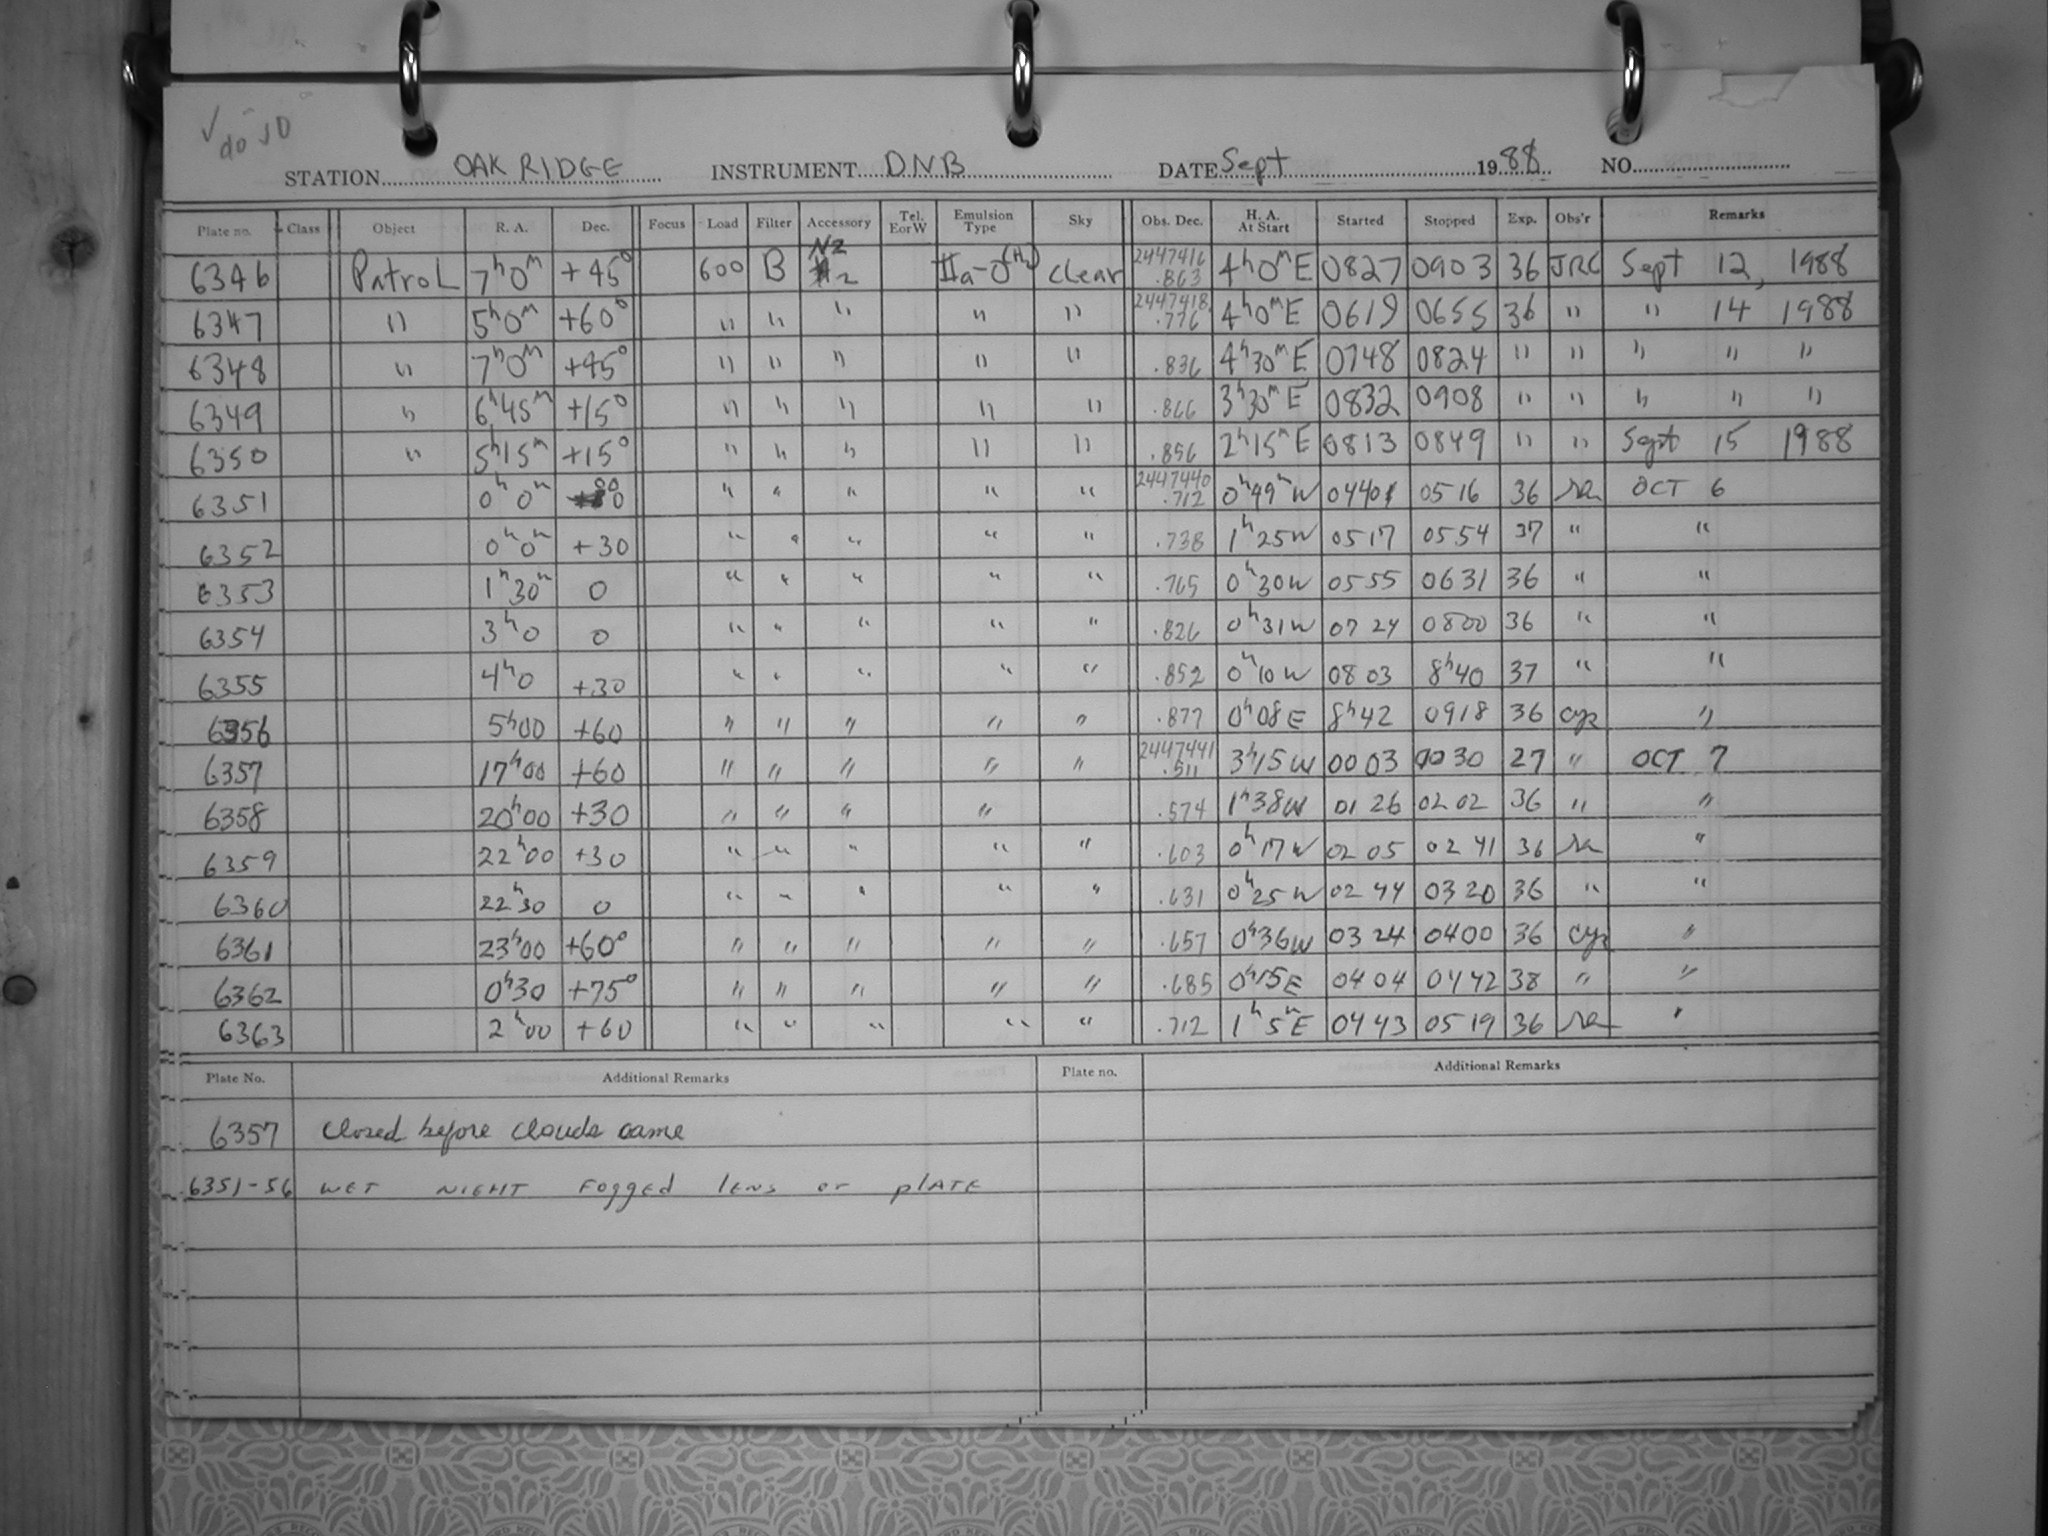 √ do JD
STATION OAK RIDGE INSTRUMENT DNB DATE Sept 1988 NO.
Plate no. Class Object R. A. Dec. Focus Load Filter Accessory Tel. EorW Emulsion Type Sky Obs. Dec. H. A. At Start Started Stopped Exp. Obs'r Remarks
6346 Patrol 7h0m +45° 600 B N2 IIa-O(H2) clear 2447416 .863 4h0mE 0827 0903 36 JRC Sept 12, 1988
6347 " 5h0m +60° " " " " " 2447418 .776 4h0mE 0619 0655 36 " " 14 1988
6348 " 7h0m +45° " " " " " .836 4h30mE 0748 0824 " " " " "
6349 " 6h45m +15° " " " " " .866 3h30mE 0832 0908 " " " " "
6350 " 5h15m +15° " " " " " .856 2h15mE 0813 0849 " " Sept 15 1988
6351 0h0m 0 " " " " " 2447440 .712 0h49mW 0440 0516 36 OCT 6
6352 0h0m +30 " " " " " .738 1h25W 0517 0554 37 " "
6353 1h30m 0 " " " " " .765 0h30W 0555 0631 36 " "
6354 3h0 0 " " " " " .826 0h31W 0724 0800 36 " "
6355 4h0 +30 " " " " " .852 0h10W 0803 8h40 37 " "
6356 5h00 +60 " " " " " .877 0h08E 8h42 0918 36 cyr "
6357 17h00 +60 " " " " " 2447441 .511 3h15W 0003 0030 27 " OCT 7
6358 20h00 +30 " " " " .574 1h38W 0126 0202 36 " "
6359 22h00 +30 " " " " " .603 0h17W 0205 0241 36 "
6360 22h30 0 " " " " " .631 0h25W 0244 0320 36 " "
6361 23h00 +60° " " " " " .657 0h36W 0324 0400 36 cyr "
6362 0h30 +75° " " " " " .685 0h15E 0404 0442 38 " "
6363 2h00 +60 " " " " " .712 1h5mE 0443 0519 36 "
Plate No. Additional Remarks Plate no. Additional Remarks
6357 Closed before clouds came
6351-56 WET NIGHT FOGGED LENS OR PLATE